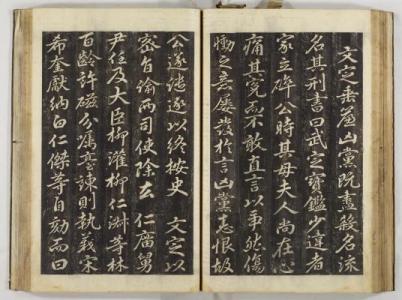 文定垂簾凶黨既盡殺名流
名其刑書曰武定寶鑑少違者
家立碎公時其母夫人尚在心
痛其寃不敢直言以事然傷
慟之意屡發於言凶黨志恨故
公遂謹遂以終按史 文定以
密旨偷兩司使除去 仁廟舅
尹任及大臣柳灌柳仁淑等林
百齡許磁分屬臺諫則執義宋
希奎獻納白仁傑等自劾而曰